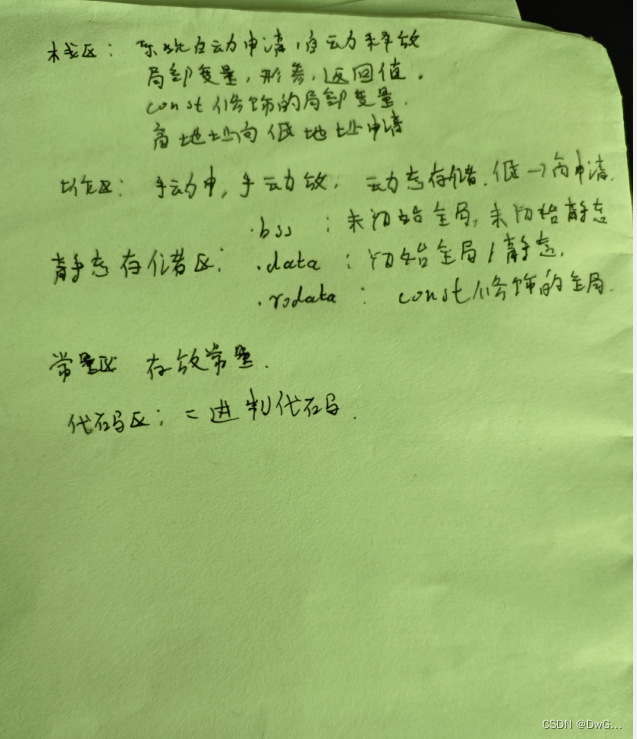 栈区：系统自动申请，自动释放
局部变量，形参，返回值。
const修饰的局部变量.
高地址向低地址申请
堆区：手动申，手动放，动态存储.低→高申请.
.bss：未初始全局，未初始静态
静态存储区：.data：初始全局/静态.
.rodata：const修饰的全局.
常量区 存放常量.
代码区：二进制代码.
CSDN @DwG...